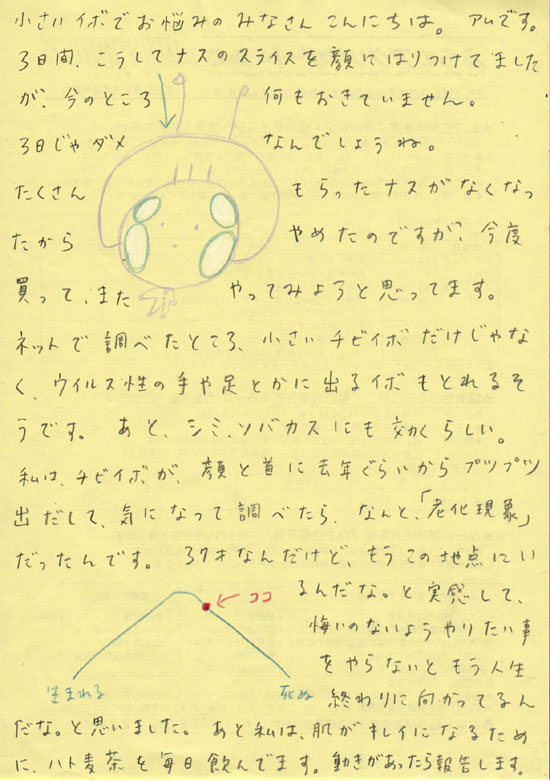 小さいイボでお悩みのみなさんこんにちは。アムです。
3日間、こうしてナスのスライスを顔にはりつけてました
が、今のところ 何もおきていません。
3日じゃダメ なんでしょうね。
たくさん もらったナスがなくなっ
たから やめたのですが、今度
買って、また やってみようと思ってます。
ネットで調べたところ、小さいチビイボだけじゃな
く、ウイルス性の手や足とかに出るイボもとれるそ
うです。あと、シミ、ソバカスにも効くらしい。
私は、チビイボが、顔と首に去年ぐらいからプツプツ
出だして、気になって調べたら、なんと、「老化現象」
だったんです。37才なんだけど、もうこの地点にい
るんだな。と実感して、
ココ
悔いのないようやりたい事
をやらないともう人生
生まれる 死ぬ 終わりに向かってるん
だな。と思いました。あと私は、肌がキレイになるため
に、ハト麦茶を毎日飲んでます。動きがあったら報告します。